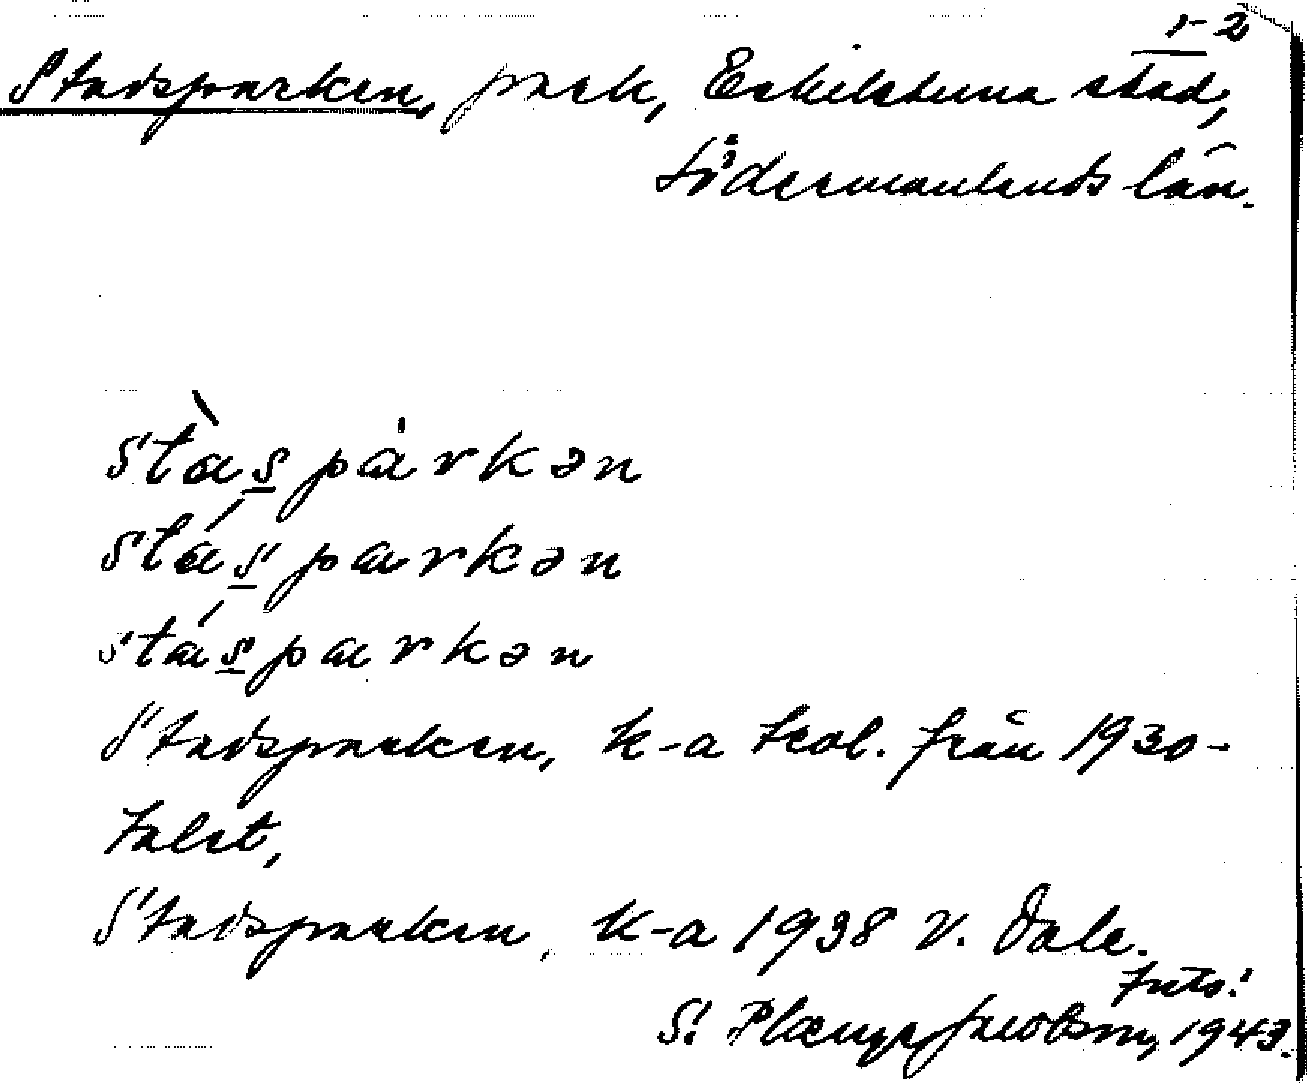 1-2
Stadsparken, park, Eskilstuna stad,
Södermanlands län.
stàspàrkən
stásparkən
stásparkən
Stadsparken, k-a från 1930-
talet,
Stadsparken, k-a 1938 V. Dale.
foto:
S. Jacobson, 1943.